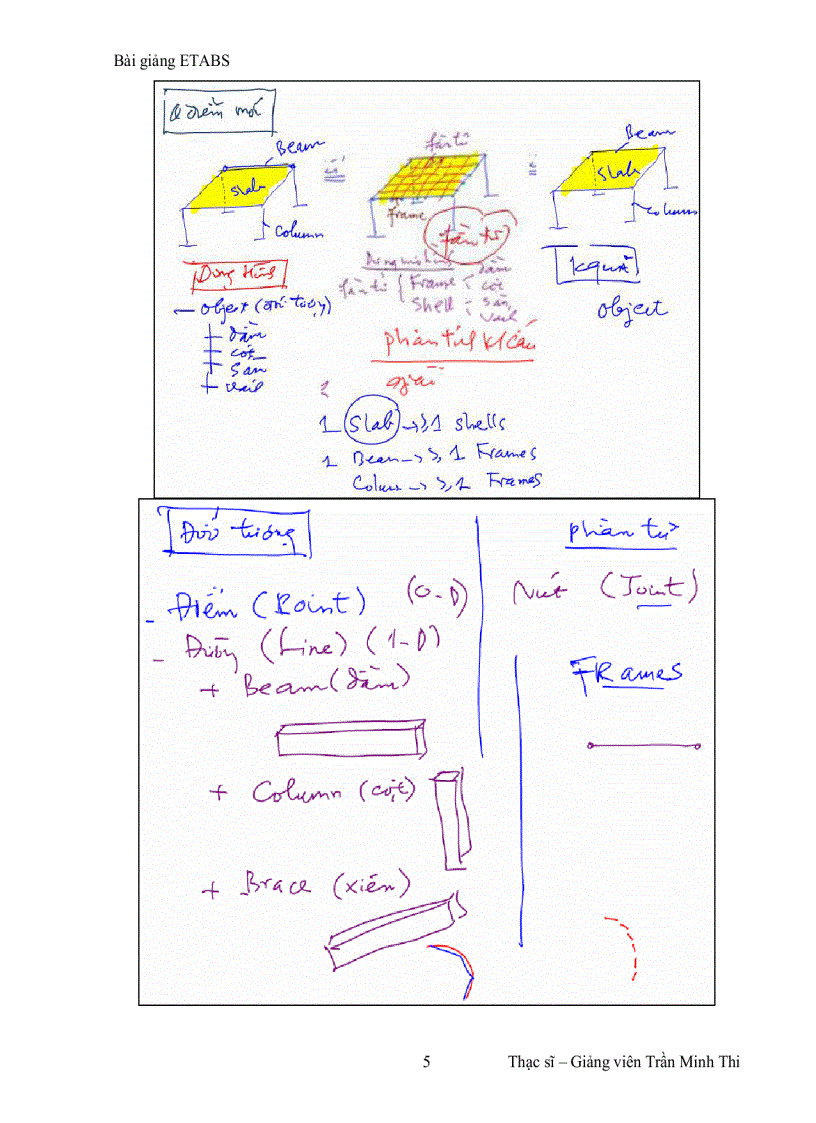 Bài giảng ETABS
Q điểm mới
Beam
Slab
Column
phần tử
Frame
phần tử
Beam
Slab
Column
Dựng hình
Kquả
phần tử { Frame : dầm cột
Shell : sàn, vách
- object (đối tượng)
+ dầm
+ cột
+ sàn
+ vách
object
phân tích k/cấu
giải
1 Slab → ≥ 1 shells
1 Beam → ≥ 1 Frames
Column → ≥ 1 Frames
Đối tượng
phần tử
- Điểm (Point) (0-D)
Nút (Joint)
- Đường (Line) (1-D)
+ Beam (dầm)
FRames
+ Column (cột)
+ Brace (xiên)
5 Thạc sĩ – Giảng viên Trần Minh Thi